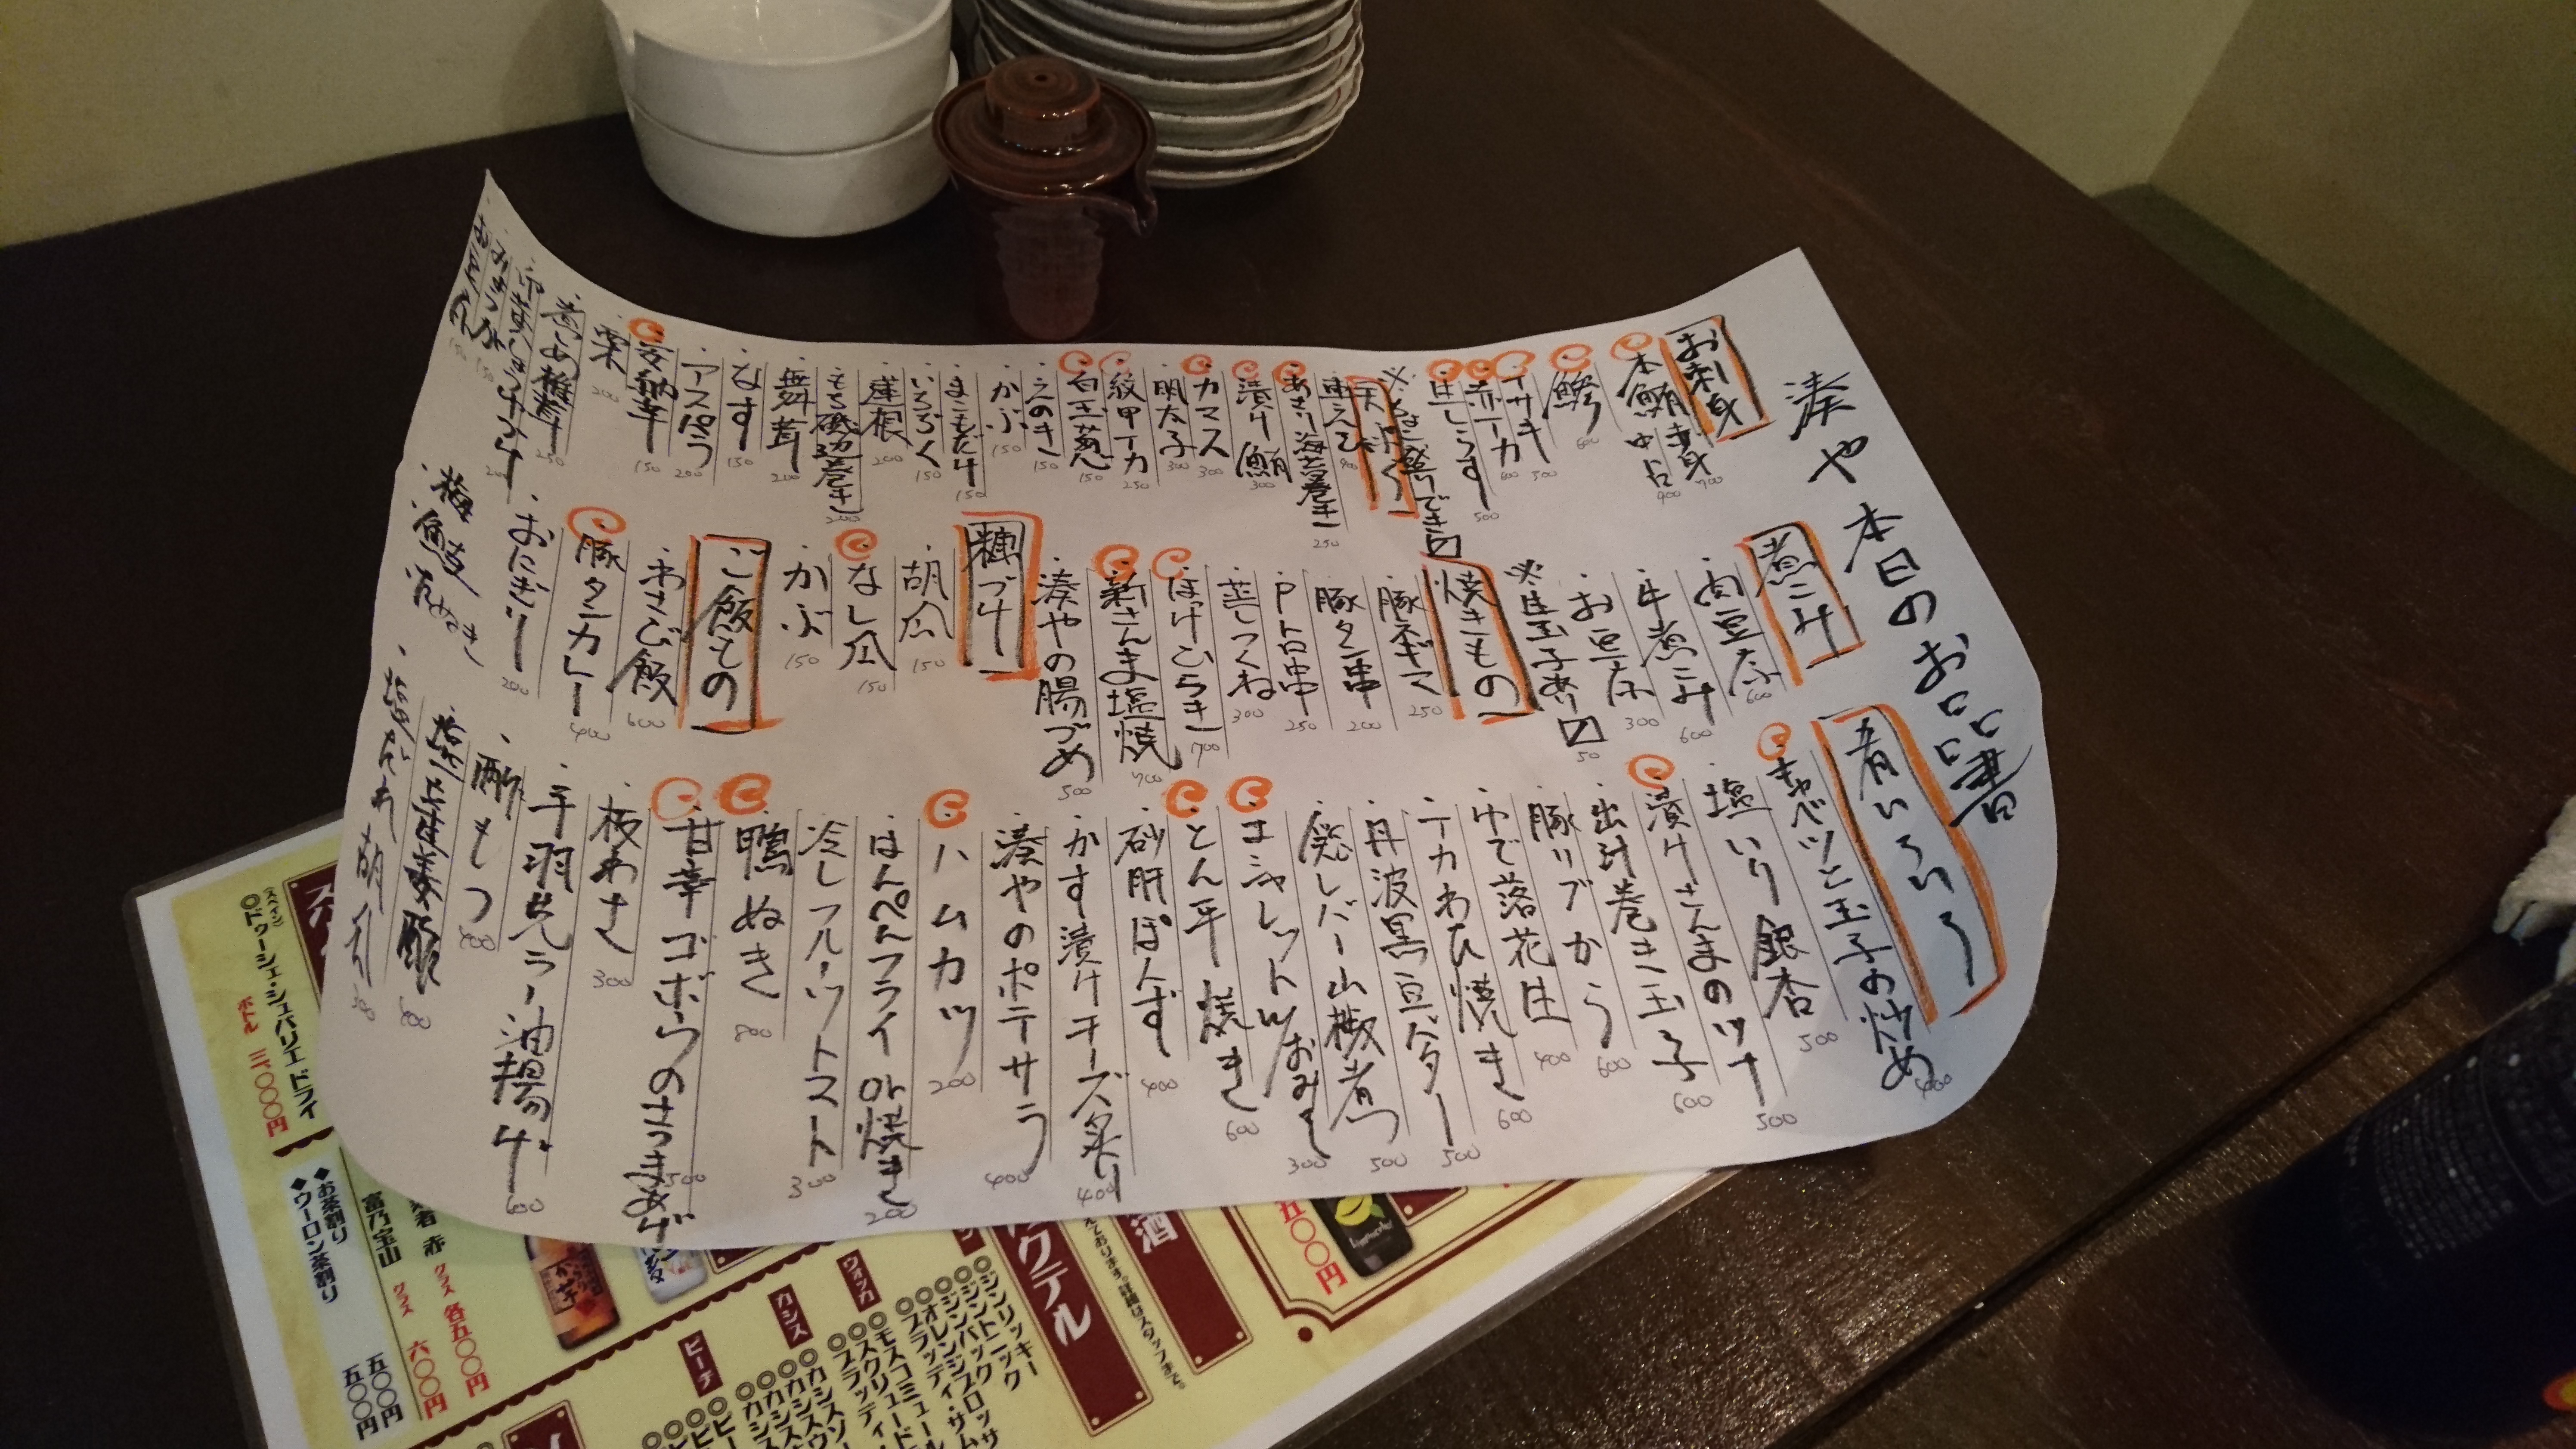 湊や 本日のお品書
お刺身
本鮪 赤身 700
中占 900
鯵 600
イサキ 500
赤イカ 600
生しらす 500
天ぷら
車えび 400
あさり海苔巻き 250
漬け鮪 300
カマス 300
明太子 300
紋甲イカ 250
白玉葱 150
えのき 150
かぶ 150
まこもだけ 150
いちぢく 150
蓮根 200
もち磯辺巻き 200
舞茸 200
なす 150
アスパラ 200
安納芋 150
栗 200
煮しめ椎茸 250
煮こみ
肉豆腐 600
牛煮こみ 600
お豆腐 300
※生玉子あり〼 50
焼きもの
豚ネギマ 250
豚タン串 200
Pトロ串 250
生つくね 300
ほっけひらき 700
新さんま塩焼 700
湊やの腸づめ 500
糠づけ
胡瓜 150
なし瓜 150
かぶ 150
ご飯もの
わさび飯 600
豚タンカレー 400
おにぎり 200
・梅
・鮭
肴いろいろ
キャベツと玉子の炒め 400
塩いり銀杏 500
漬けさんまのツナ 500
出汁巻き玉子 600
豚リブから 600
ゆで落花生 400
イカわた焼き 600
丹波黒豆バター 500
鶏レバー山椒煮 500
エシャレットツおみそ 300
とん平焼き 600
砂肝ぽんず 400
かす漬けチーズ炙り 400
湊やのポテサラ 400
ハムカツ 200
はんぺんフライor焼き 200
冷しフルーツトマト 300
鴨ぬき 800
甘辛ゴボウのさつまあげ 500
板わさ 300
手羽先ラー油揚げ 600
酢もつ
カクテル
ウォッカ
カシス
ピーチ
ジンリッキー
ジントニック
ジンバック
モスコミュール
(スペイン)
◎ドゥーシェ・シュバリエ ドライ
ボトル 三、〇〇〇円
◆お茶割り 五〇〇円
◆ウーロン茶割り 五〇〇円
富乃宝山 グラス 六〇〇円
赤 グラス 各五〇〇円
五〇〇円